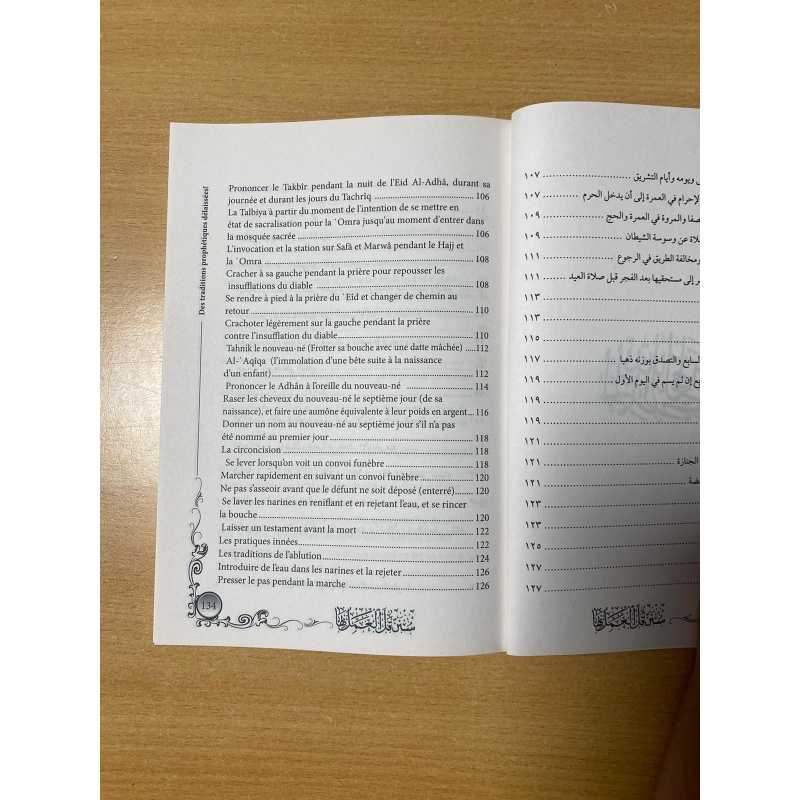 Des traditions prophétiques délaissées!
Prononcer le Takbîr pendant la nuit de l'Eid Al-Adhâ, durant sa
journée et durant les jours du Tachrîq ........ 106
La Talbiya à partir du moment de l'intention de se mettre en
état de sacralisation pour la `Omra jusqu'au moment d'entrer dans
la mosquée sacrée ........ 106
L'invocation et la station sur Safâ et Marwâ pendant le Hajj et
la `Omra ........ 108
Cracher à sa gauche pendant la prière pour repousser les
insufflations du diable ........ 108
Se rendre à pied à la prière du `Eïd et changer de chemin au
retour ........ 110
Crachoter légèrement sur la gauche pendant la prière
contre l'insufflation du diable ........ 110
Tahnik le nouveau-né (Frotter sa bouche avec une datte mâchée) .....112
Al-`Aqîqa (l'immolation d'une bête suite à la naissance
d'un enfant) ........ 112
Prononcer le Adhân à l'oreille du nouveau-né ........ 114
Raser les cheveux du nouveau-né le septième jour (de sa
naissance), et faire une aumône équivalente à leur poids en argent ... 116
Donner un nom au nouveau-né au septième jour s'il n'a pas
été nommé au premier jour ........ 118
La circoncision ........ 118
Se lever lorsqu'on voit un convoi funèbre ........ 118
Marcher rapidement en suivant un convoi funèbre ........ 120
Ne pas s'asseoir avant que le défunt ne soit déposé (enterré) ....... 120
Se laver les narines en reniflant et en rejetant l'eau, et se rincer
la bouche ........ 120
Laisser un testament avant la mort ........ 122
Les pratiques innées ........ 122
Les traditions de l'ablution ........ 124
Introduire de l'eau dans les narines et la rejeter ........ 126
Presser le pas pendant la marche ........ 126
134
سنن قل العمل بها
ل ويومه وأيام التشريق ........ ١٠٧
لإحرام في العمرة إلى أن يدخل الحرم ........ ١٠٧
صفا والمروة في العمرة والحج ........ ١٠٩
لاة عن وسوسة الشيطان ........ ١٠٩
ومخالفة الطريق في الرجوع ........ ١١١
ر إلى مستحقيها بعد الفجر قبل صلاة العيد ........ ١١١
١١٣
١١٣
١١٥
لسابع والتصدق بوزنه ذهبا ........ ١١٧
ع إن لم يسم في اليوم الأول ........ ١١٩
١١٩
١١٩
١٢١
الجنازة ........ ١٢١
ضة ........ ١٢١
١٢٣
١٢٣
١٢٥
١٢٧
١٢٧
سنن قل العمل بها